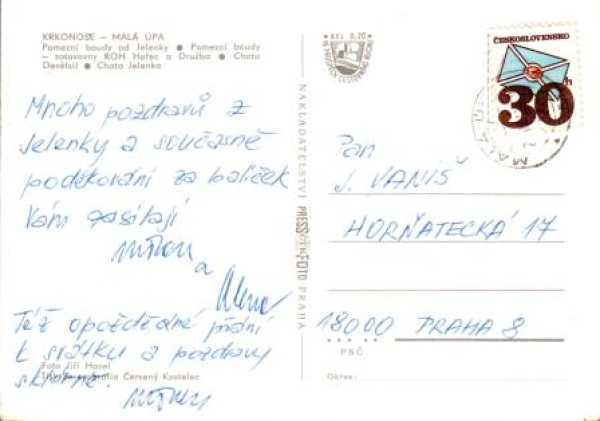 KRKONOŠE — MALÁ ÚPA
Pomezní boudy od Jelenky ● Pomezní boudy
— zotavovny ROH Hořec a Družba ● Chata
Desětsil ● Chata Jelenka
Mnoho pozdravů z
Jelenky a současně
poděkování za balíček
Vám zasílají
Milan
a
Alena
Též opožděné přání
k svátku a pozdravy
Foto Jiří Havel
Tisk Severografia Červený Kostelec
NAKLADATELSTVÍ PRESSFOTO PRAHA
Kčs 0,20
ČESKOSLOVENSKO
30h
MALÁ
Pan
J. VANIŠ
HORŇATECKÁ 17
18000 PRAHA 8
PSČ
Okres: